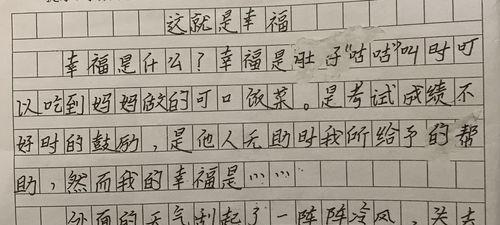 这就是幸福
幸福是什么？幸福是肚子“咕咕”叫时可
以吃到妈妈做的可口饭菜。是考试成绩不
好时的鼓励，是他人无助时我所给予的帮
助，然而我的幸福是……
外面的天气刮起了一阵阵冷风，